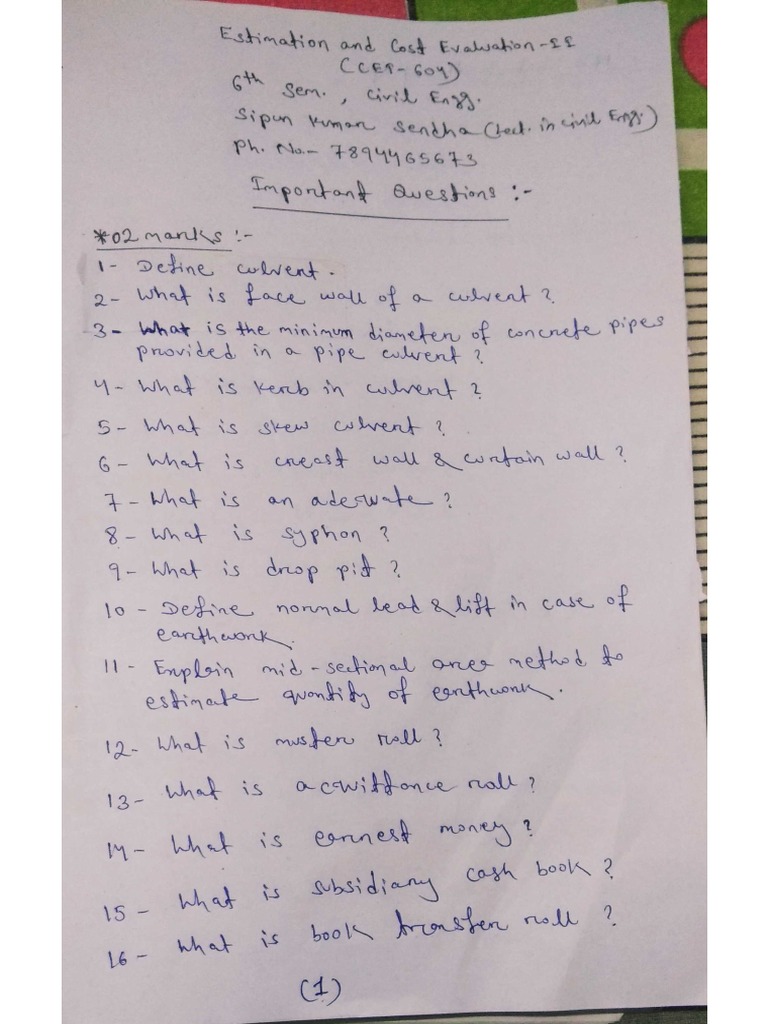 Estimation and Cost Evaluation-II
(CEP-604)
6th Sem., Civil Engg.
Sipun Kumar Sendha (Lect. in Civil Engg.)
Ph. No.- 7894465673
Important Questions :-
*02 marks :-
1- Define culvert.
2- What is face wall of a culvert?
3- What is the minimum diameter of concrete pipes
provided in a pipe culvert?
4- What is kerb in culvert?
5- What is skew culvert?
6- What is creast wall & curtain wall?
7- What is an
8- What is syphon?
9- What is drop pit?
10- Define normal lead & lift in case of
earthwork.
11- Explain mid-sectional area method to
estimate quantity of earthwork.
12- What is muster roll?
13- What is acquittance roll?
14- What is earnest money?
15- What is subsidiary cash book?
16- What is book transfer roll?
(1)